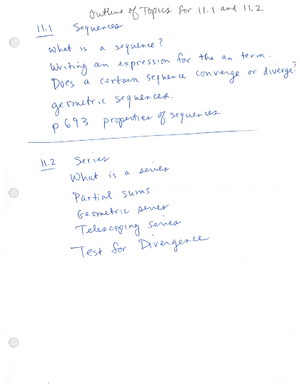 Outline of Topics for 11.1 and 11.2
11.1 Sequences
What is a sequence?
Writing an expression for the an term.
Does a certain sequence converge or diverge?
geometric sequences.
p 693 properties of sequences
11.2 Series
What is a series
Partial sums
Geometric series
Telescoping series
Test for Divergence